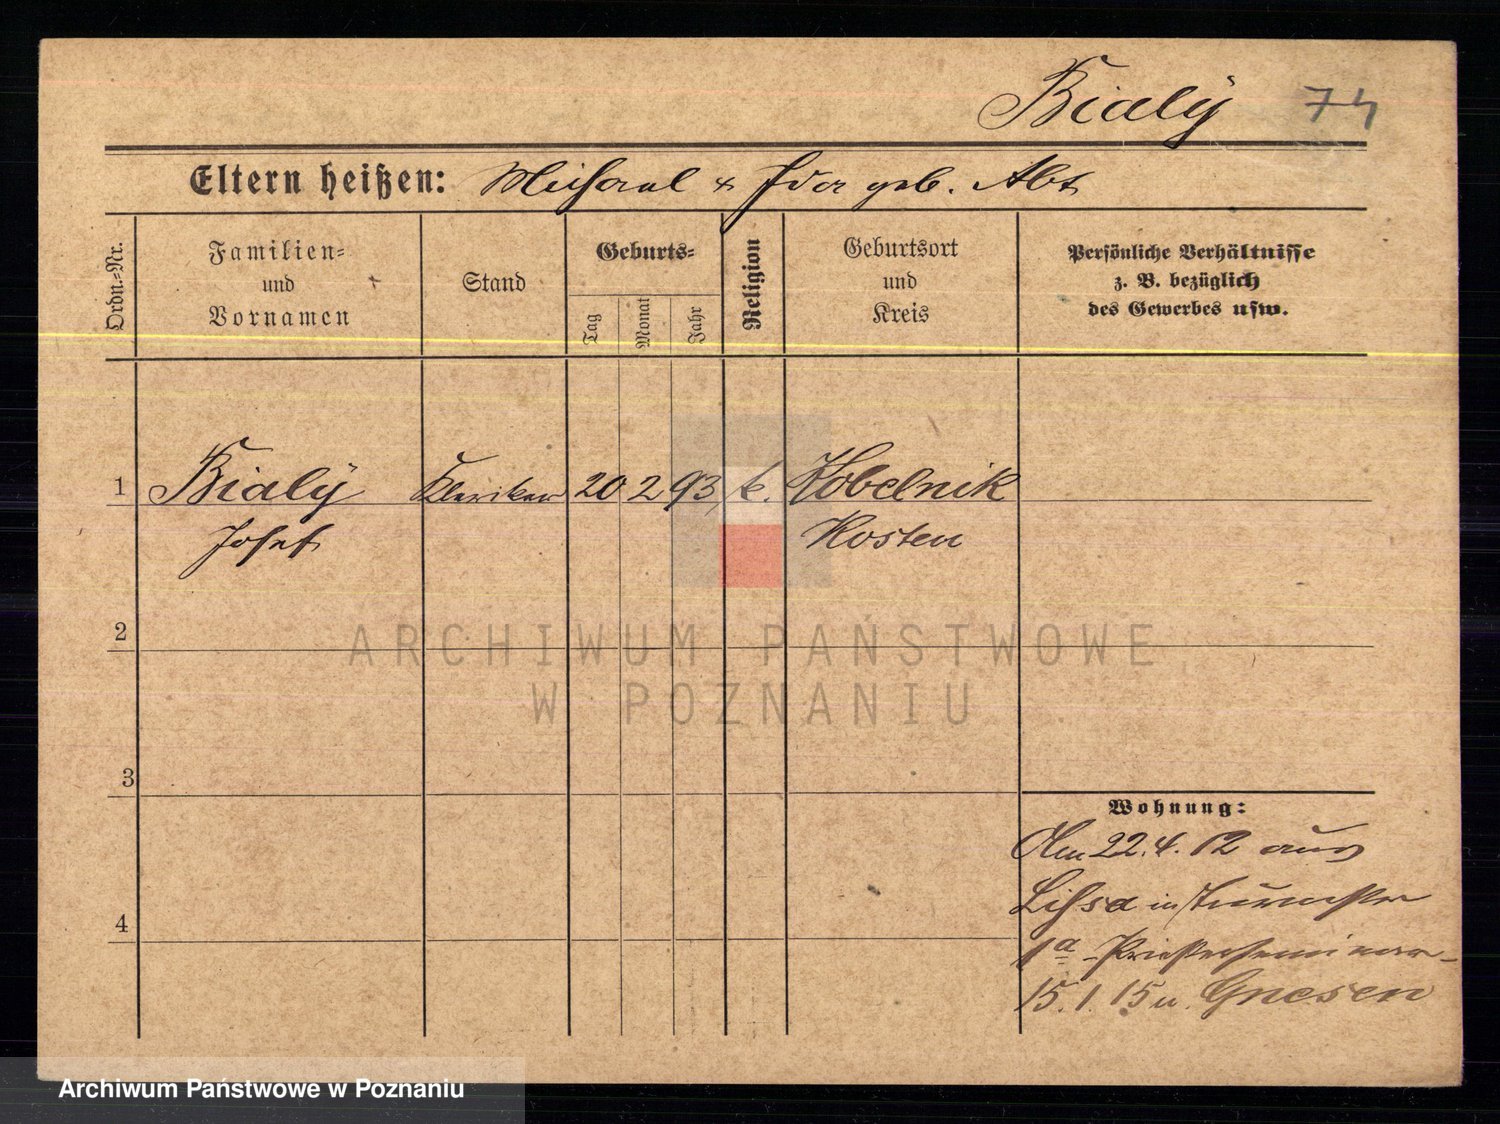 Bialÿ 74
Eltern heißen: Michael & Ida geb. Abt
Ordn.=Nr.
Familien=
und
Vornamen
Stand
Geburts=
Tag
Monat
Jahr
Religion
Geburtsort
und
Kreis
Persönliche Verhältnisse
z. B. bezüglich
des Gewerbes usw.
1 Bialÿ Kleriker 20 2 93, k. Kobelnik
Josef Kosten
2
3
4
Wohnung:
Am 22.4.12 aus
Lissa in
1a Priesterseminar
15.1.15 n. Gnesen
ARCHIWUM PAŃSTWOWE
W POZNANIU
Archiwum Państwowe w Poznaniu